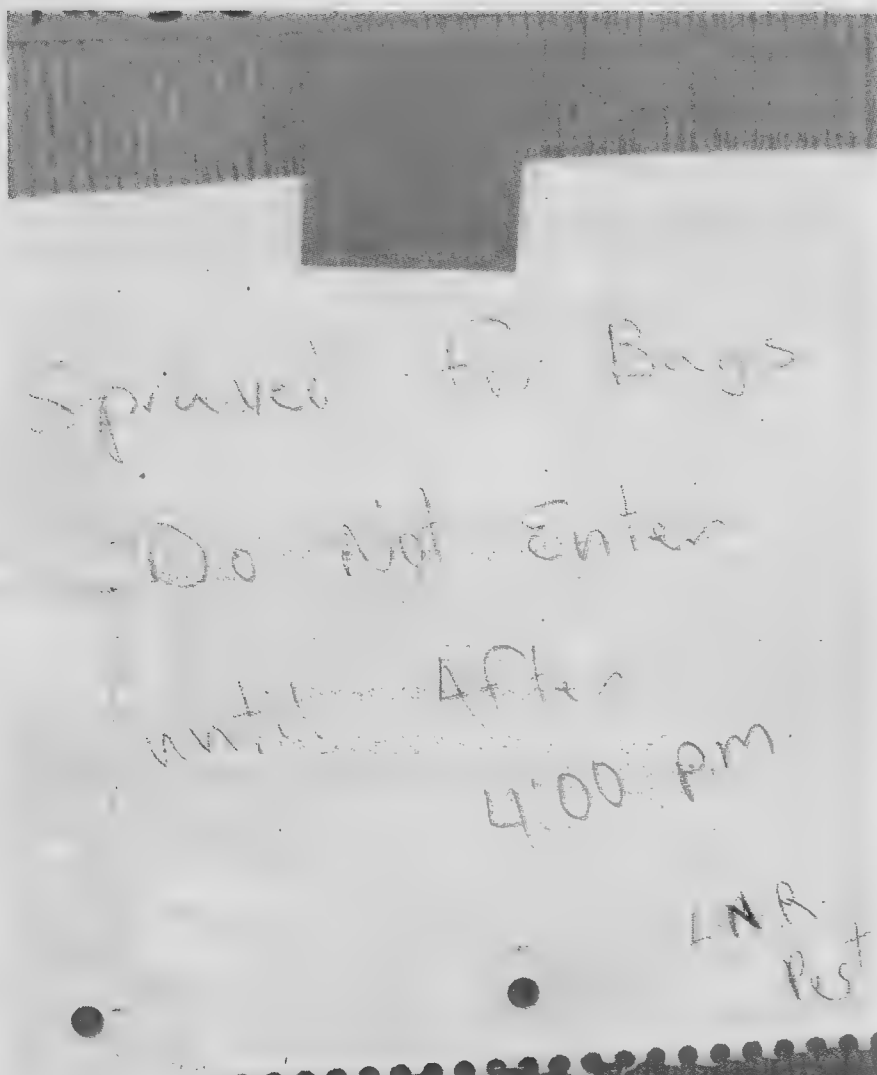 Sprayed for Bugs
Do Not Enter
until After
4:00 pm
LNR
Pest